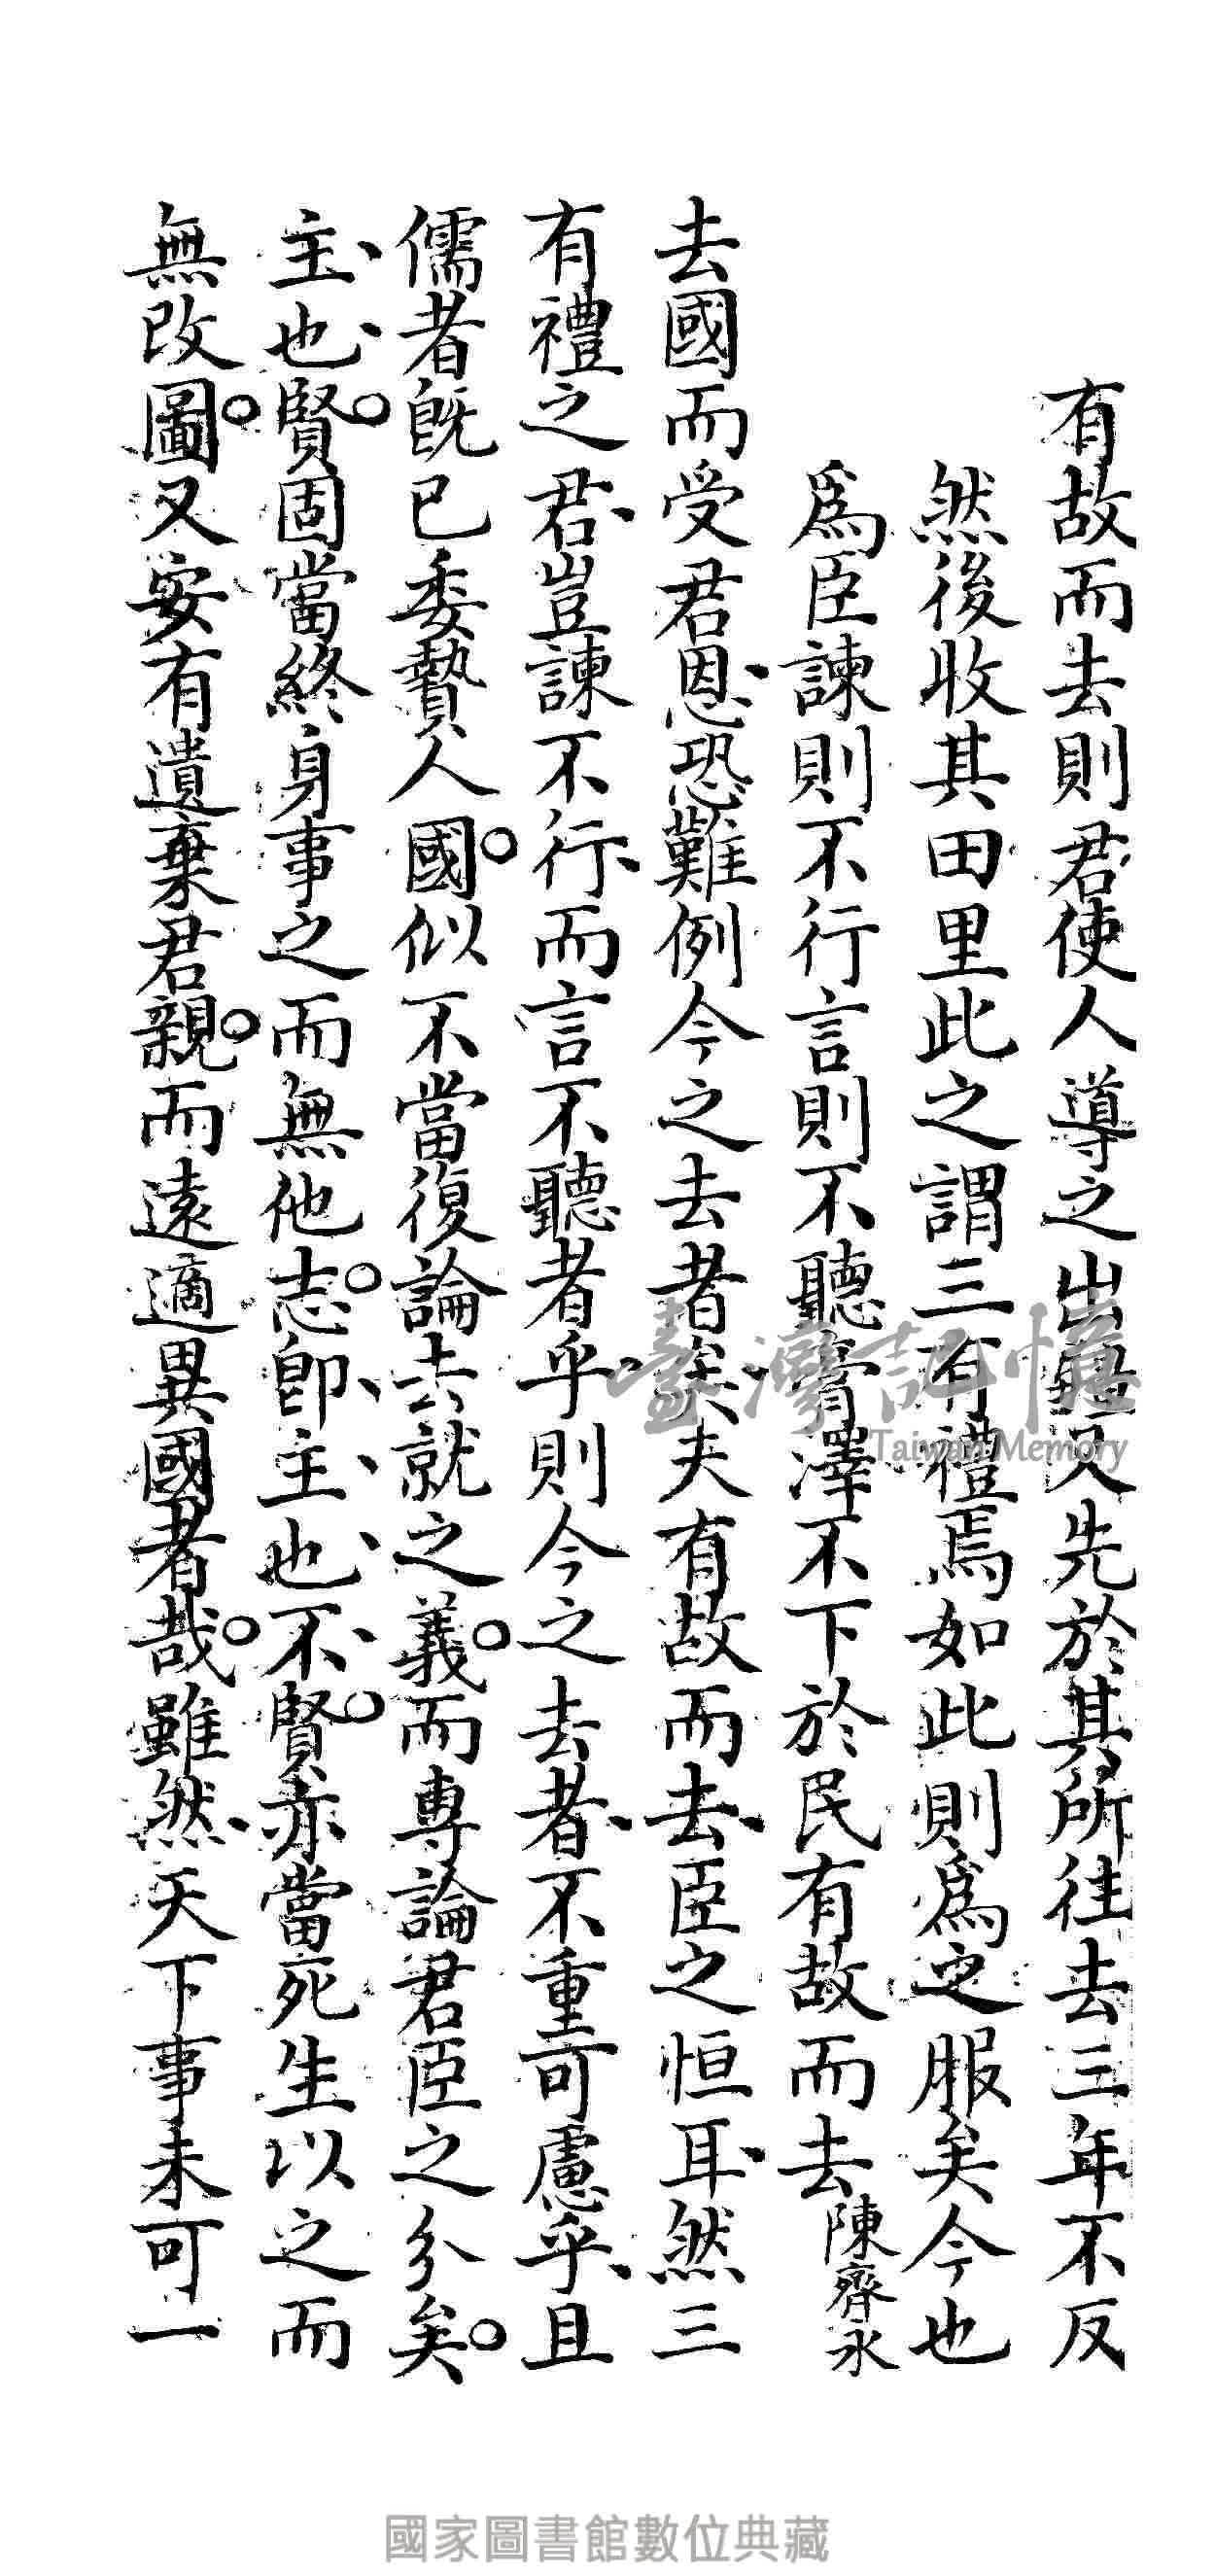 有故而去則君使人導之出疆又先於其所往去三年不反
然後收其田里此之謂三有禮焉如此則爲之服矣今也
爲臣諫則不行言則不聽膏澤不下於民有故而去陳齊永
去國而受君恩恐難例今之去者矣夫有故而去臣之恒耳然三
有禮之君豈諫不行而言不聽者乎則今之去者不重可慮乎且
儒者既已委贄人國似不當復論去就之義而專論君臣之分矣
主也賢固當終身事之而無他志即主也不賢亦當死生以之而
無改圖又安有遺棄君親而遠適異國者哉雖然天下事未可一
臺灣記憶
Taiwan Memory
國家圖書館數位典藏